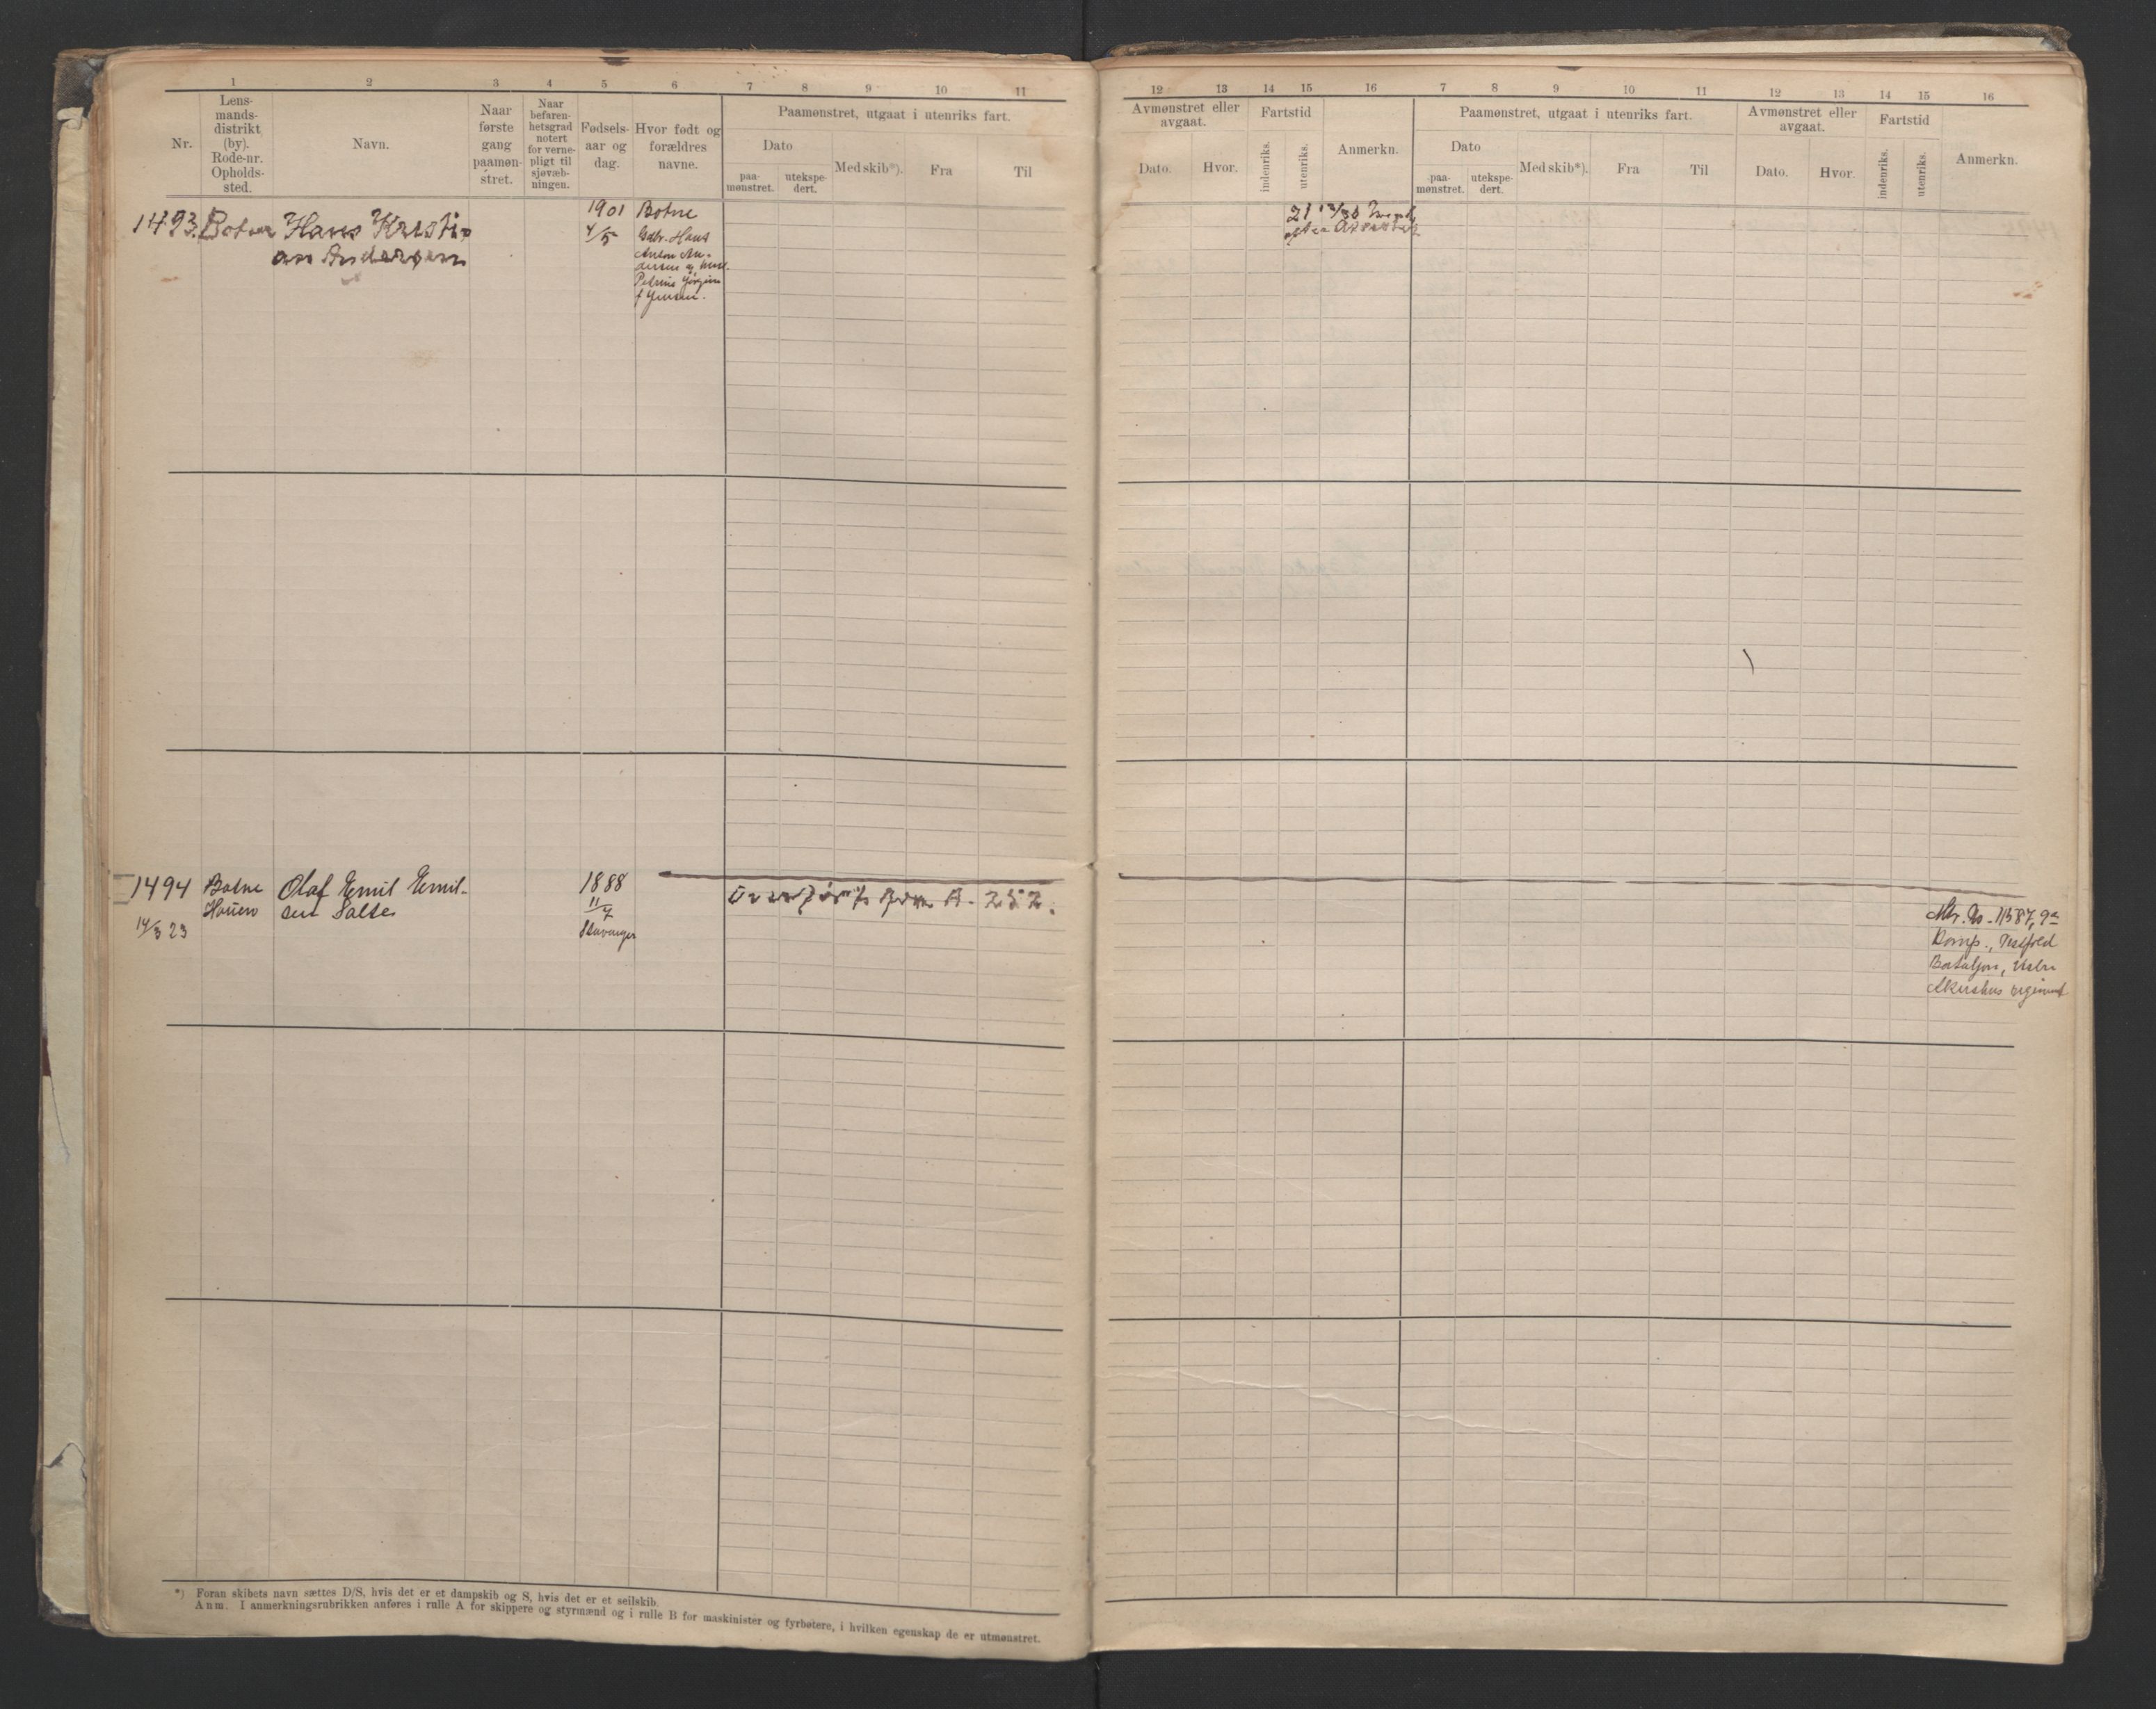 1 2 3 4 5 6 7 8 9 10 11
Nr.
Lens-
mands-
distrikt
(by).
Rode-nr.
Opholds-
sted.
Navn.
Naar
første
gang
paamøn-
stret.
Naar
befaren-
hetsgrad
notert
for verne-
pligt til
sjøvæb-
ningen.
Fødsels-
aar og
dag.
Hvor født og
forældres
navne.
Paamønstret, utgaat i utenriks fart.
Dato
paa-
mønstret.
utekspe-
dert.
Med skib*).
Fra
Til
1493. Botne Hans Kristi-
an Andersen
1901
4/5
Botne
Hans
Anton An-
dersen og
Petrine
Jensen.
1494 Botne Olaf Emil Emil-
sen Salte
14/3 23
1888
11/7
Stavanger
Overført A. 252.
*) Foran skibets navn sættes D/S, hvis det er et dampskib og S, hvis det er et seilskib.
Anm. I anmerkningsrubrikken anføres i rulle A for skippere og styrmænd og i rulle B for maskinister og fyrbøtere, i hvilken egenskap de er utmønstret.
12 13 14 15 16 7 8 9 10 11 12 13 14 15 16
Avmønstret eller
avgaat.
Dato.
Hvor.
Fartstid
indenriks.
utenriks.
Anmerkn.
Paamønstret, utgaat i utenriks fart.
Dato
paa-
mønstret.
utekspe-
dert.
Med skib*).
Fra
Til
Avmønstret eller
avgaat.
Dato.
Hvor.
Fartstid
indenriks.
utenriks.
Anmerkn.
Komp., Vestfold
Bataljon, Vestre
Akershus regiment